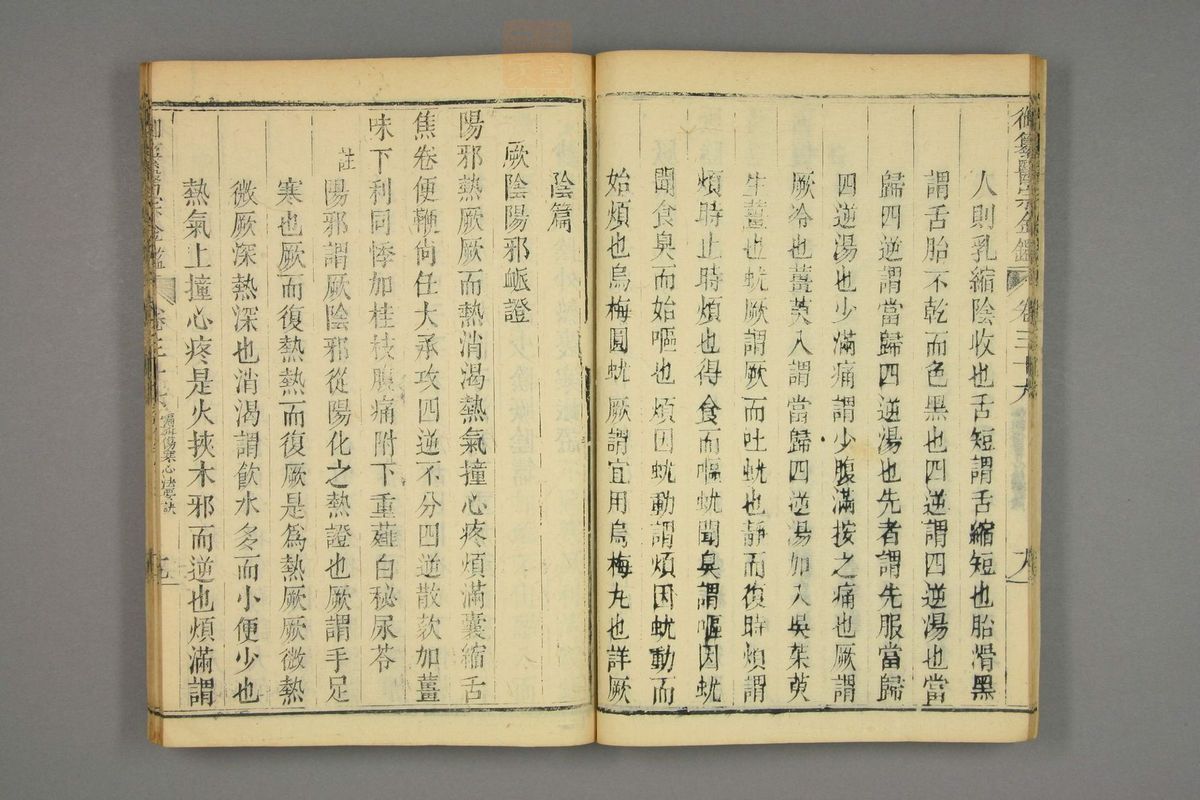 御纂醫宗金鑑 卷三十六
人則乳縮陰收也舌短謂舌縮短也胎滑黑
謂舌胎不乾而色黑也四逆謂四逆湯也當
歸四逆謂當歸四逆湯也先者謂先服當歸
四逆湯也少滿痛謂少腹滿按之痛也厥謂
厥冷也薑萸入謂當歸四逆湯加入吳茱萸
生薑也蚘厥謂厥而吐蚘也靜而復時煩謂
煩時止時煩也得食而嘔蚘聞臭謂嘔因蚘
聞食臭而始嘔也煩因蚘動謂煩因蚘動而
始煩也烏梅圓蚘厥謂宜用烏梅丸也詳厥
陰篇
厥陰陽邪衇證
陽邪熱厥厥而熱消渴熱氣撞心疼煩滿囊縮舌
焦卷便鞕尙任大承攻四逆不分四逆散欬加薑
味下利同悸加桂枝腹痛附下重薤白秘尿苓
註 陽邪謂厥陰邪從陽化之熱證也厥謂手足
寒也厥而復熱熱而復厥是爲熱厥厥微熱
微厥深熱深也消渴謂飮水多而小便少也
熱氣上撞心疼是火挾木邪而逆也煩滿謂
卷三十六 傷寒心法要訣